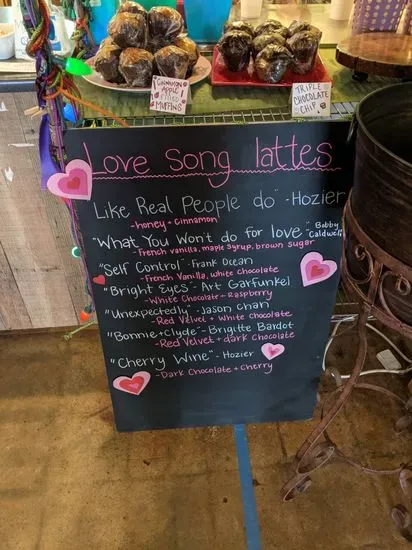 CINNAMON
APPLE
MUFFINS
TRIPLE
CHOCOLATE
CHIP
Love Song lattes
"Like Real People do" - Hozier
- honey + cinnamon
"What You Won't do for love" - Bobby Caldwell
- French vanilla, maple syrup, brown sugar
"Self Control" - Frank Ocean
- French Vanilla, white chocolate
"Bright Eyes" - Art Garfunkel
- White Chocolate + Raspberry
"Unexpectedly" - Jason Chan
- Red Velvet + White Chocolate
"Bonnie + Clyde" - Brigitte Bardot
- Red Velvet + dark Chocolate
"Cherry Wine" - Hozier
- Dark Chocolate + Cherry